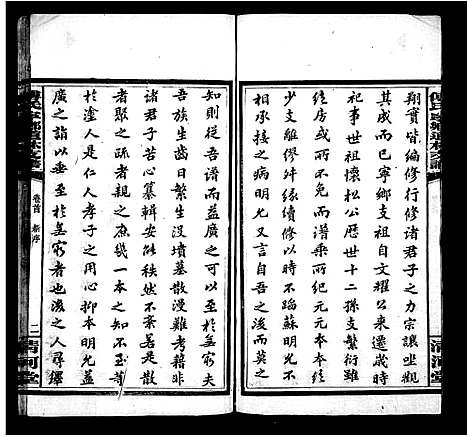 翔實皆編修行修諸君子之力宗讓坐觀
其成而已寧鄉支祖自文耀公肇
事世祖懷松公歷世十二孫支繁
衍房或不一而譜乘紀元元本本不
少支離僇弟續修以時不蹈蘇明允
相承接之病言自吾之後而莫之
知則從吾益廣之可以至於無窮夫
吾族生齒日繁墳墓散漫難考藉非
諸君子苦心纂輯安能秩然不紊若是散
者聚之疏者親之庶幾一本之不至等
於塗人是仁人孝子之用心抑本明允益
廣之詣以日至於無窮者也後之人尋繹
卷首 新序
二
清河堂
清河堂